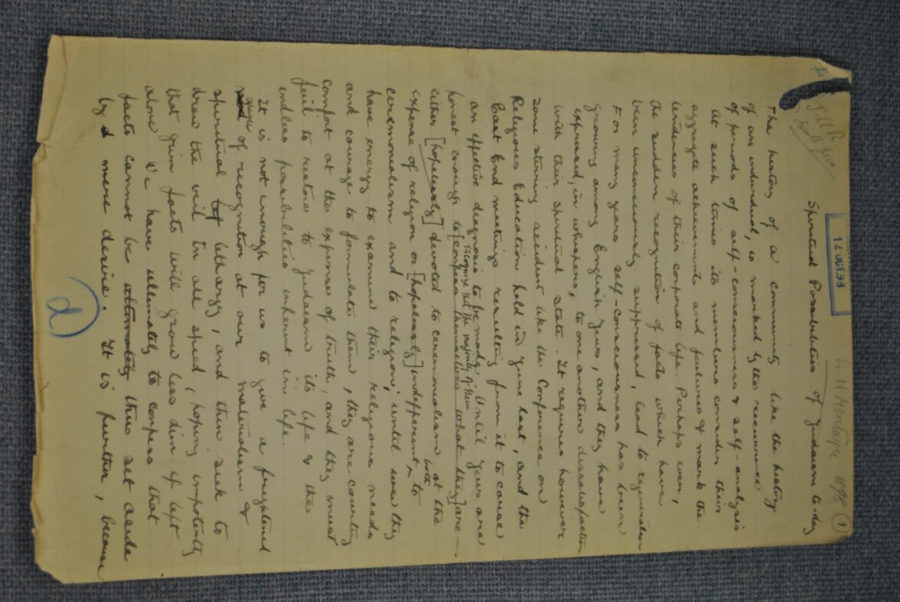 L H Montagu 1898 (1)
16 OCT 93
Spiritual Possibilities of Judaism to-day
The history of a community like the history
of an individual, is marked by the recurrence
of periods of self-consciousness & self-analysis
At such times its members consider their
aggregate achievements and failures & mark the
tendencies of their corporate life. Perhaps even,
the sudden recognition of facts which have
been unconsciously suppressed, lead to regeneration
For many years self-consciousness has been
growing among English Jews, and they have
expressed, in whispers, to one another dissatisfaction
with their spiritual state. It requires however
some strong accident like the Conference on
Religious Education held in June last, and the
East End meetings resulting from it to cause
an effective diagnosis to be made. Until Jews are
recognise that the majority of them
honest enough to [confess themselves what they] are
either [hopelessly] devoted to ceremonialism at the
expense of religion or [hopelessly] indifferent both to
ceremonialism and to religion; until even they
have energy to examine their religious needs
and courage to formulate them, they are courting
comfort at the expense of truth, and they must
fail to restore to Judaism its life & the
endless possibilities inherent in life.
It is not enough for us to give a frightened
of recognition at our materialism &
spiritual lethargy, and then seek to
draw the veil in all speed, hoping impotently
that grim facts will grow less dim if left
alone. We have ultimately to confess that
facts cannot be thus set aside
by mere desire. It is further, because
d